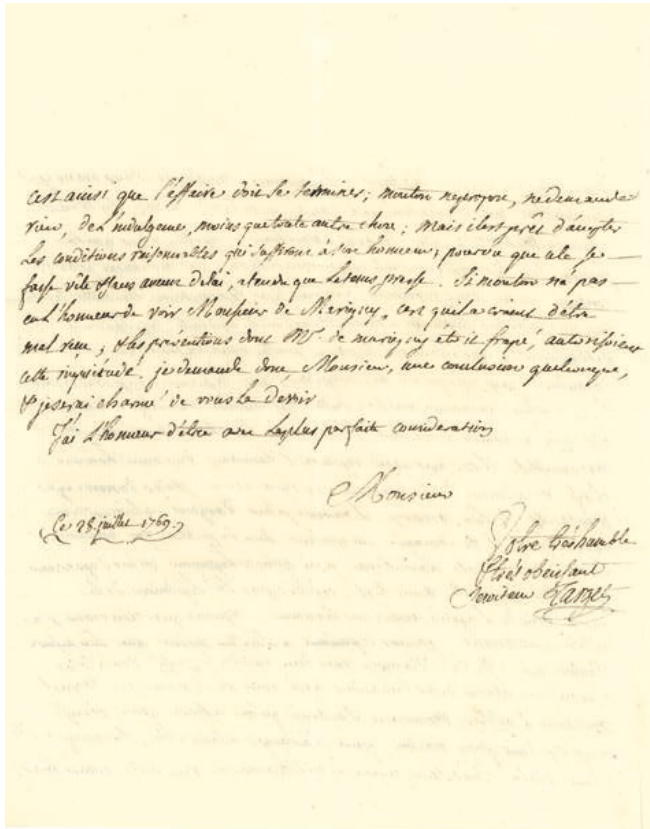 c'est ainsi que l'affaire doit se terminer; mouton ne propose, ne demande
rien, de l'indulgence, moins que toute autre chose; mais il est prêt d'accepter
les conditions raisonnables qui s'offriront à son honneur; pourvu que cela se
fasse vîte & sans aucun délai, attendu que le tems presse. Si mouton n'a pas
eu l'honneur de voir Monsieur de Marigny, c'est qu'il a craint d'être
mal reçu; & les préventions dont Mr. de marigny étoit frapé, autorisoient
cette inquiétude. je demande donc, Monsieur, une conclusion quelconque,
& je serai charmé de vous la devoir
J'ai l'honneur d'être avec la plus parfaite consideration
Monsieur
Ce 28. juillet 1769.
Votre très humble
& très obeissant
Serviteur Target